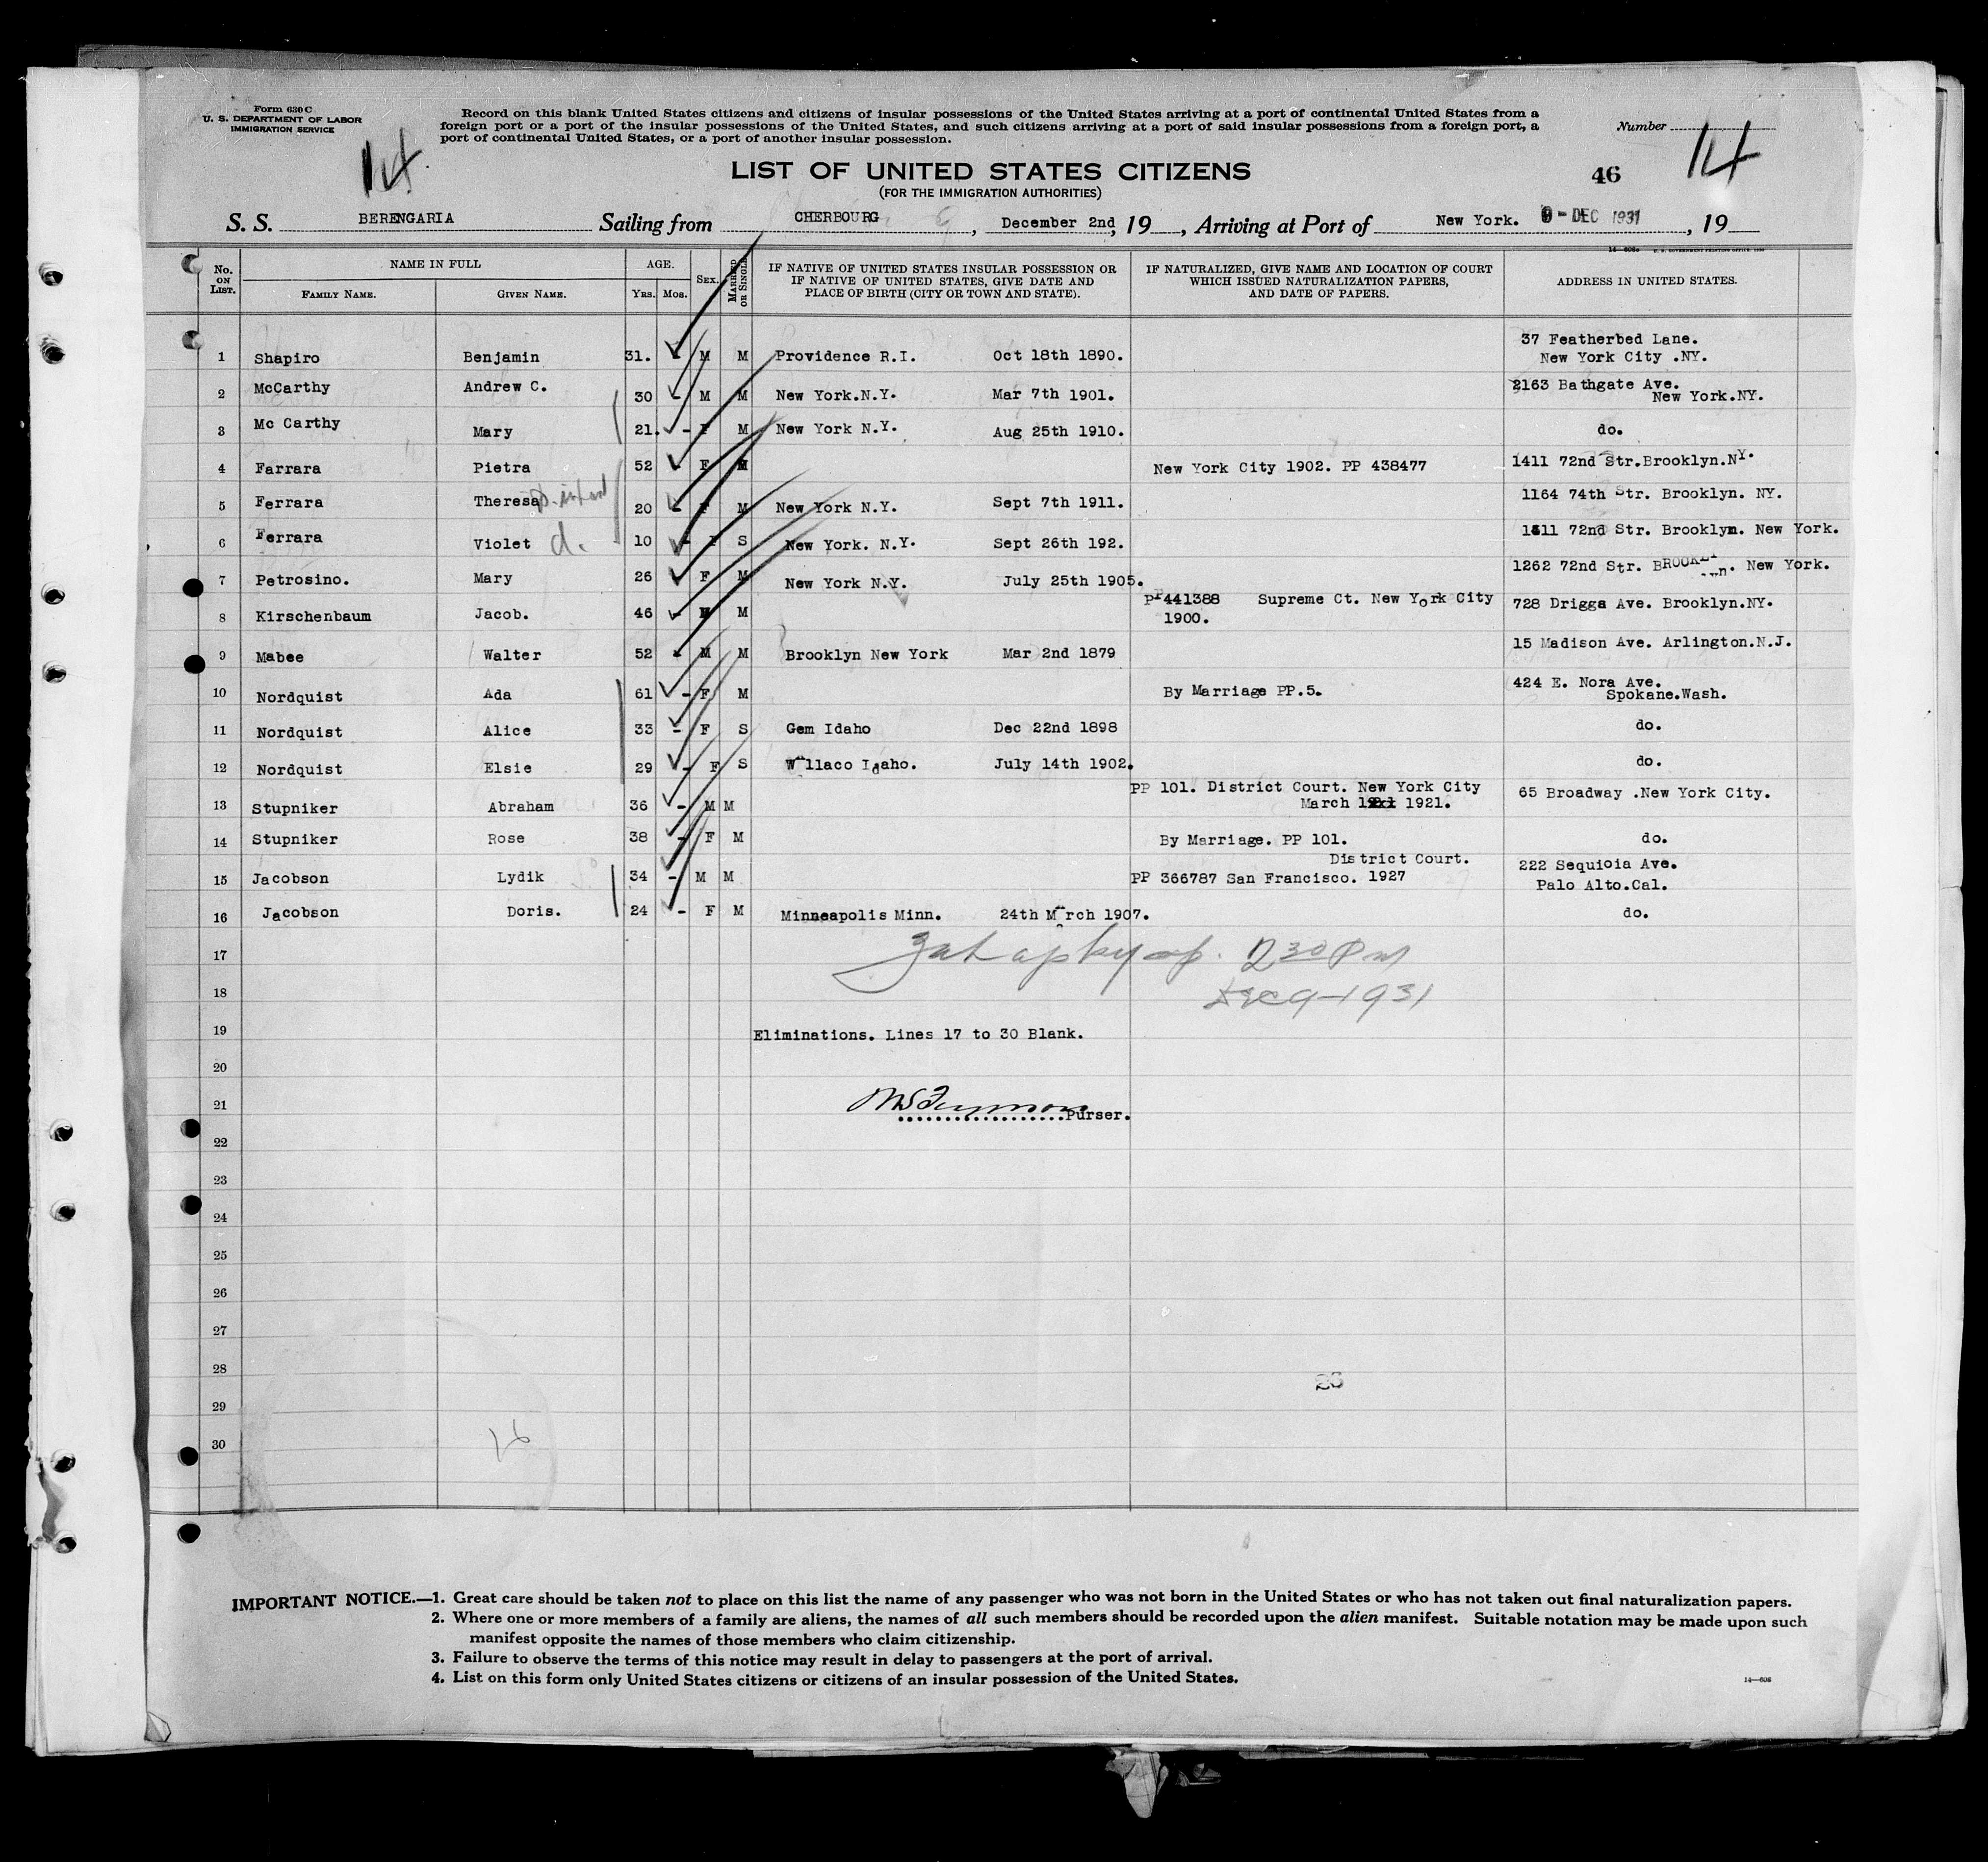 Form 630 C
U. S. DEPARTMENT OF LABOR
IMMIGRATION SERVICE
Record on this blank United States citizens and citizens of insular possessions of the United States arriving at a port of continental United States from a
foreign port or a port of the insular possessions of the United States, and such citizens arriving at a port of said insular possessions from a foreign port, a
port of continental United States, or a port of another insular possession.
Number
14
14
LIST OF UNITED STATES CITIZENS
46
(FOR THE IMMIGRATION AUTHORITIES)
S. S. BERENGARIA Sailing from CHERBOURG, December 2nd, 19, Arriving at Port of New York. 9 - DEC 1931, 19
No. ON LIST. NAME IN FULL AGE. SEX. MARRIED OR SINGLE IF NATIVE OF UNITED STATES INSULAR POSSESSION OR IF NATIVE OF UNITED STATES, GIVE DATE AND PLACE OF BIRTH (CITY OR TOWN AND STATE). IF NATURALIZED, GIVE NAME AND LOCATION OF COURT WHICH ISSUED NATURALIZATION PAPERS, AND DATE OF PAPERS. ADDRESS IN UNITED STATES.
FAMILY NAME. GIVEN NAME. YRS. MOS.
1 Shapiro Benjamin 31. - M M Providence R.I. Oct 18th 1890. 37 Featherbed Lane. New York City .NY.
2 McCarthy Andrew C. 30 - M M New York.N.Y. Mar 7th 1901. 2163 Bathgate Ave. New York.NY.
3 Mc Carthy Mary 21. - F M New York N.Y. Aug 25th 1910. do.
4 Farrara Pietra 52 - F M New York City 1902. PP 438477 1411 72nd Str.Brooklyn.NY.
5 Ferrara Theresa 20 - F M New York N.Y. Sept 7th 1911. 1164 74th Str. Brooklyn. NY.
6 Ferrara Violet d. 10 - F S New York. N.Y. Sept 26th 192. 1411 72nd Str. Brooklyn. New York.
7 Petrosino. Mary 26 F M New York N.Y. July 25th 1905. 1262 72nd Str. BROOKLyn. New York.
8 Kirschenbaum Jacob. 46 - M M PP 441388 Supreme Ct. New York City 1900. 728 Drigga Ave. Brooklyn.NY.
9 Mabee Walter 52 - M M Brooklyn New York Mar 2nd 1879 15 Madison Ave. Arlington.N.J.
10 Nordquist Ada 61 - F M By Marriage PP.5. 424 E. Nora Ave. Spokane.Wash.
11 Nordquist Alice 33 - F S Gem Idaho Dec 22nd 1898 do.
12 Nordquist Elsie 29 - F S Wallaco Idaho. July 14th 1902. do.
13 Stupniker Abraham 36 - M M PP 101. District Court. New York City March 1921. 65 Broadway .New York City.
14 Stupniker Rose 38 - F M By Marriage. PP 101. do.
15 Jacobson Lydik 34 - M M District Court. PP 366787 San Francisco. 1927 222 Sequioia Ave. Palo Alto.Cal.
16 Jacobson Doris. 24 - F M Minneapolis Minn. 24th March 1907. do.
17 230 Pm
18 Dec 9-1931
19 Eliminations. Lines 17 to 30 Blank.
20
21 Purser.
22
23
24
25
26
27
28
23
29
30
16
IMPORTANT NOTICE.—1. Great care should be taken not to place on this list the name of any passenger who was not born in the United States or who has not taken out final naturalization papers.
2. Where one or more members of a family are aliens, the names of all such members should be recorded upon the alien manifest. Suitable notation may be made upon such
manifest opposite the names of those members who claim citizenship.
3. Failure to observe the terms of this notice may result in delay to passengers at the port of arrival.
4. List on this form only United States citizens or citizens of an insular possession of the United States.
14—606